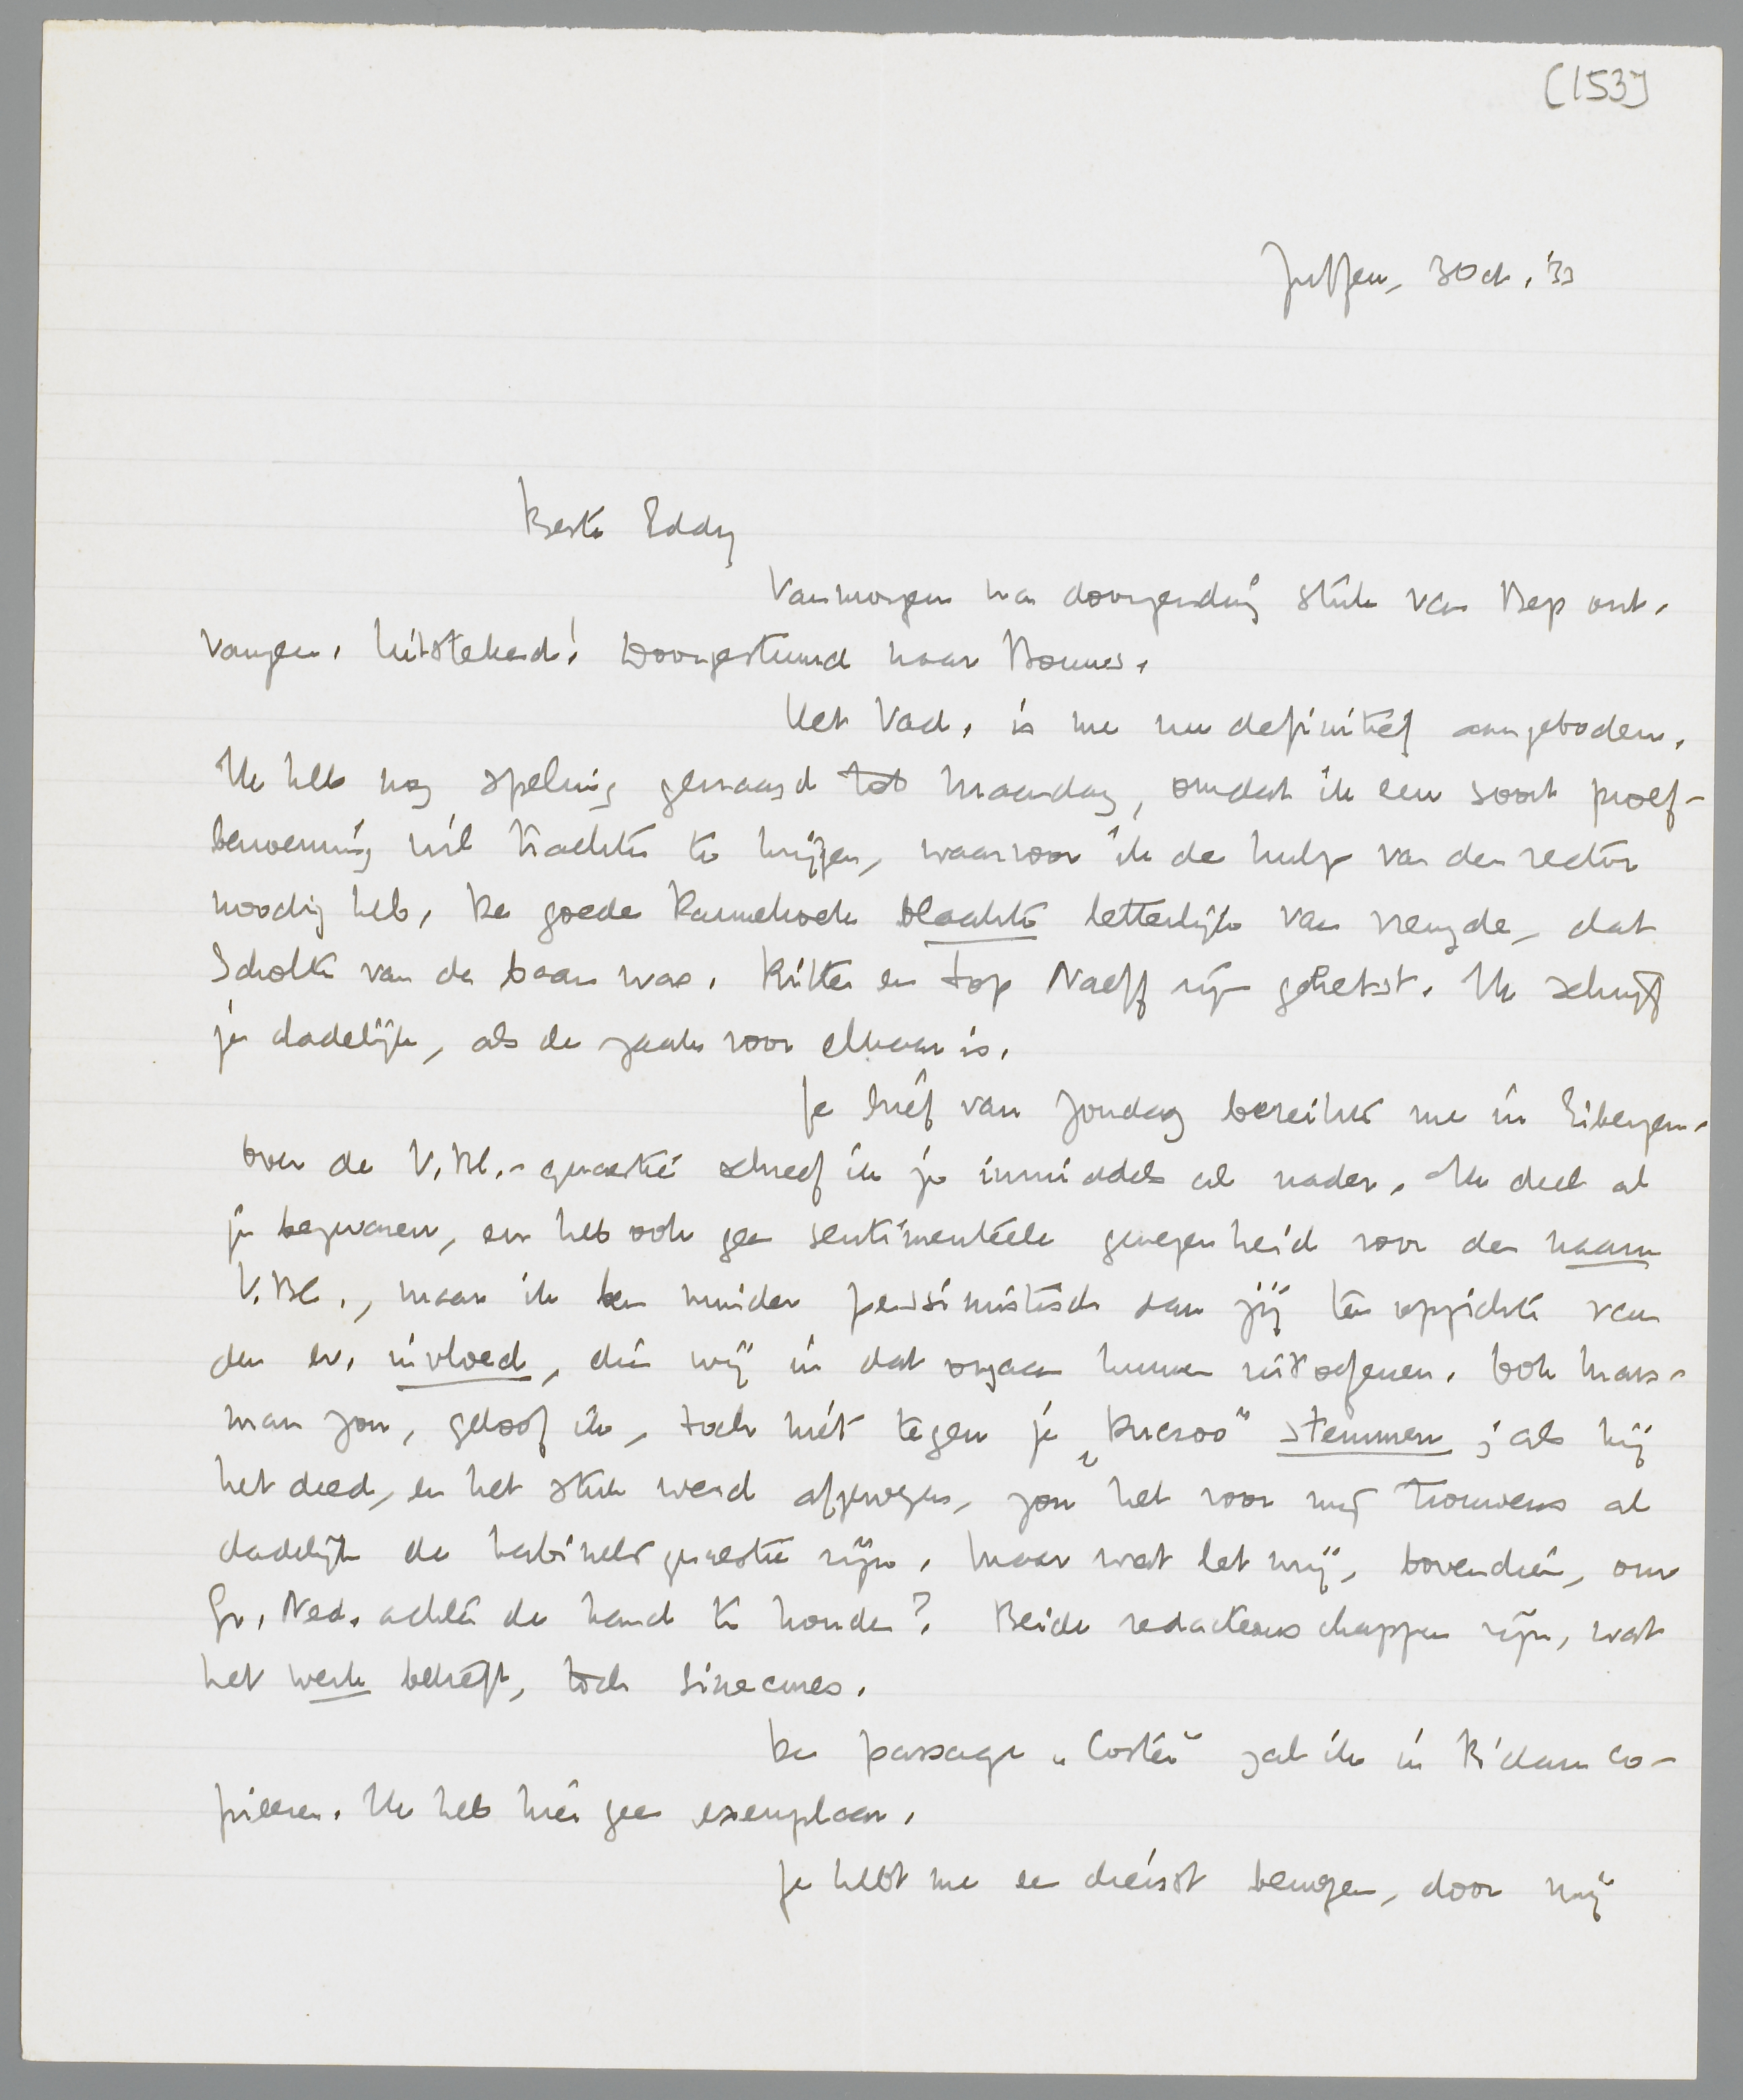 [153]
Zutfen, 3 Oct. '33
Beste Eddy
Vanmorgen na doorzending stuk van Bep ont-
vangen. Uitstekend! Doorgestuurd naar Bouws.
Het Vad. is me nu definitief aangeboden.
Ik heb nog speling gevraagd tot Maandag, omdat ik een soort proef-
benoeming wil trachten te krijgen, waarvoor ik de hulp van den rector
noodig heb. De goede Rannekoek blaakte letterlijk van vreugde, dat
Scholte van de baan was. Ritter en Top Naeff zijn gehetst. Ik schrijf
je dadelijk, als de zaak voor elkaar is.
Je brief van Zondag bereikte me in Eibergen.
Over de V.Bl.-quaestie schreef ik je inmiddels al nader. Ik deel al
je bezwaren, en heb ook geen sentimenteele genegenheid voor den naam
V.Bl., maar ik ben minder pessimistisch dan jij ten opzichte van
den ev. invloed, dien wij in dat orgaan kunnen uitoefenen. Ook Mars-
man zou, geloof ik, toch niet tegen je „Querido” stemmen; als hij
het deed, en het stuk werd afgewezen, zou het voor mij trouwens al
dadelijk de kabinetsquaestie zijn. Maar wat let mij, bovendien, om
Gr. Ned. achter de hand te houden? Beide redacteurschappen zijn, wat
het werk betreft, toch sinecures.
De passage „Coster” zal ik in R'dam co-
pieeren. Ik heb hier geen exemplaar.
Je hebt me een dienst bewezen, door mij